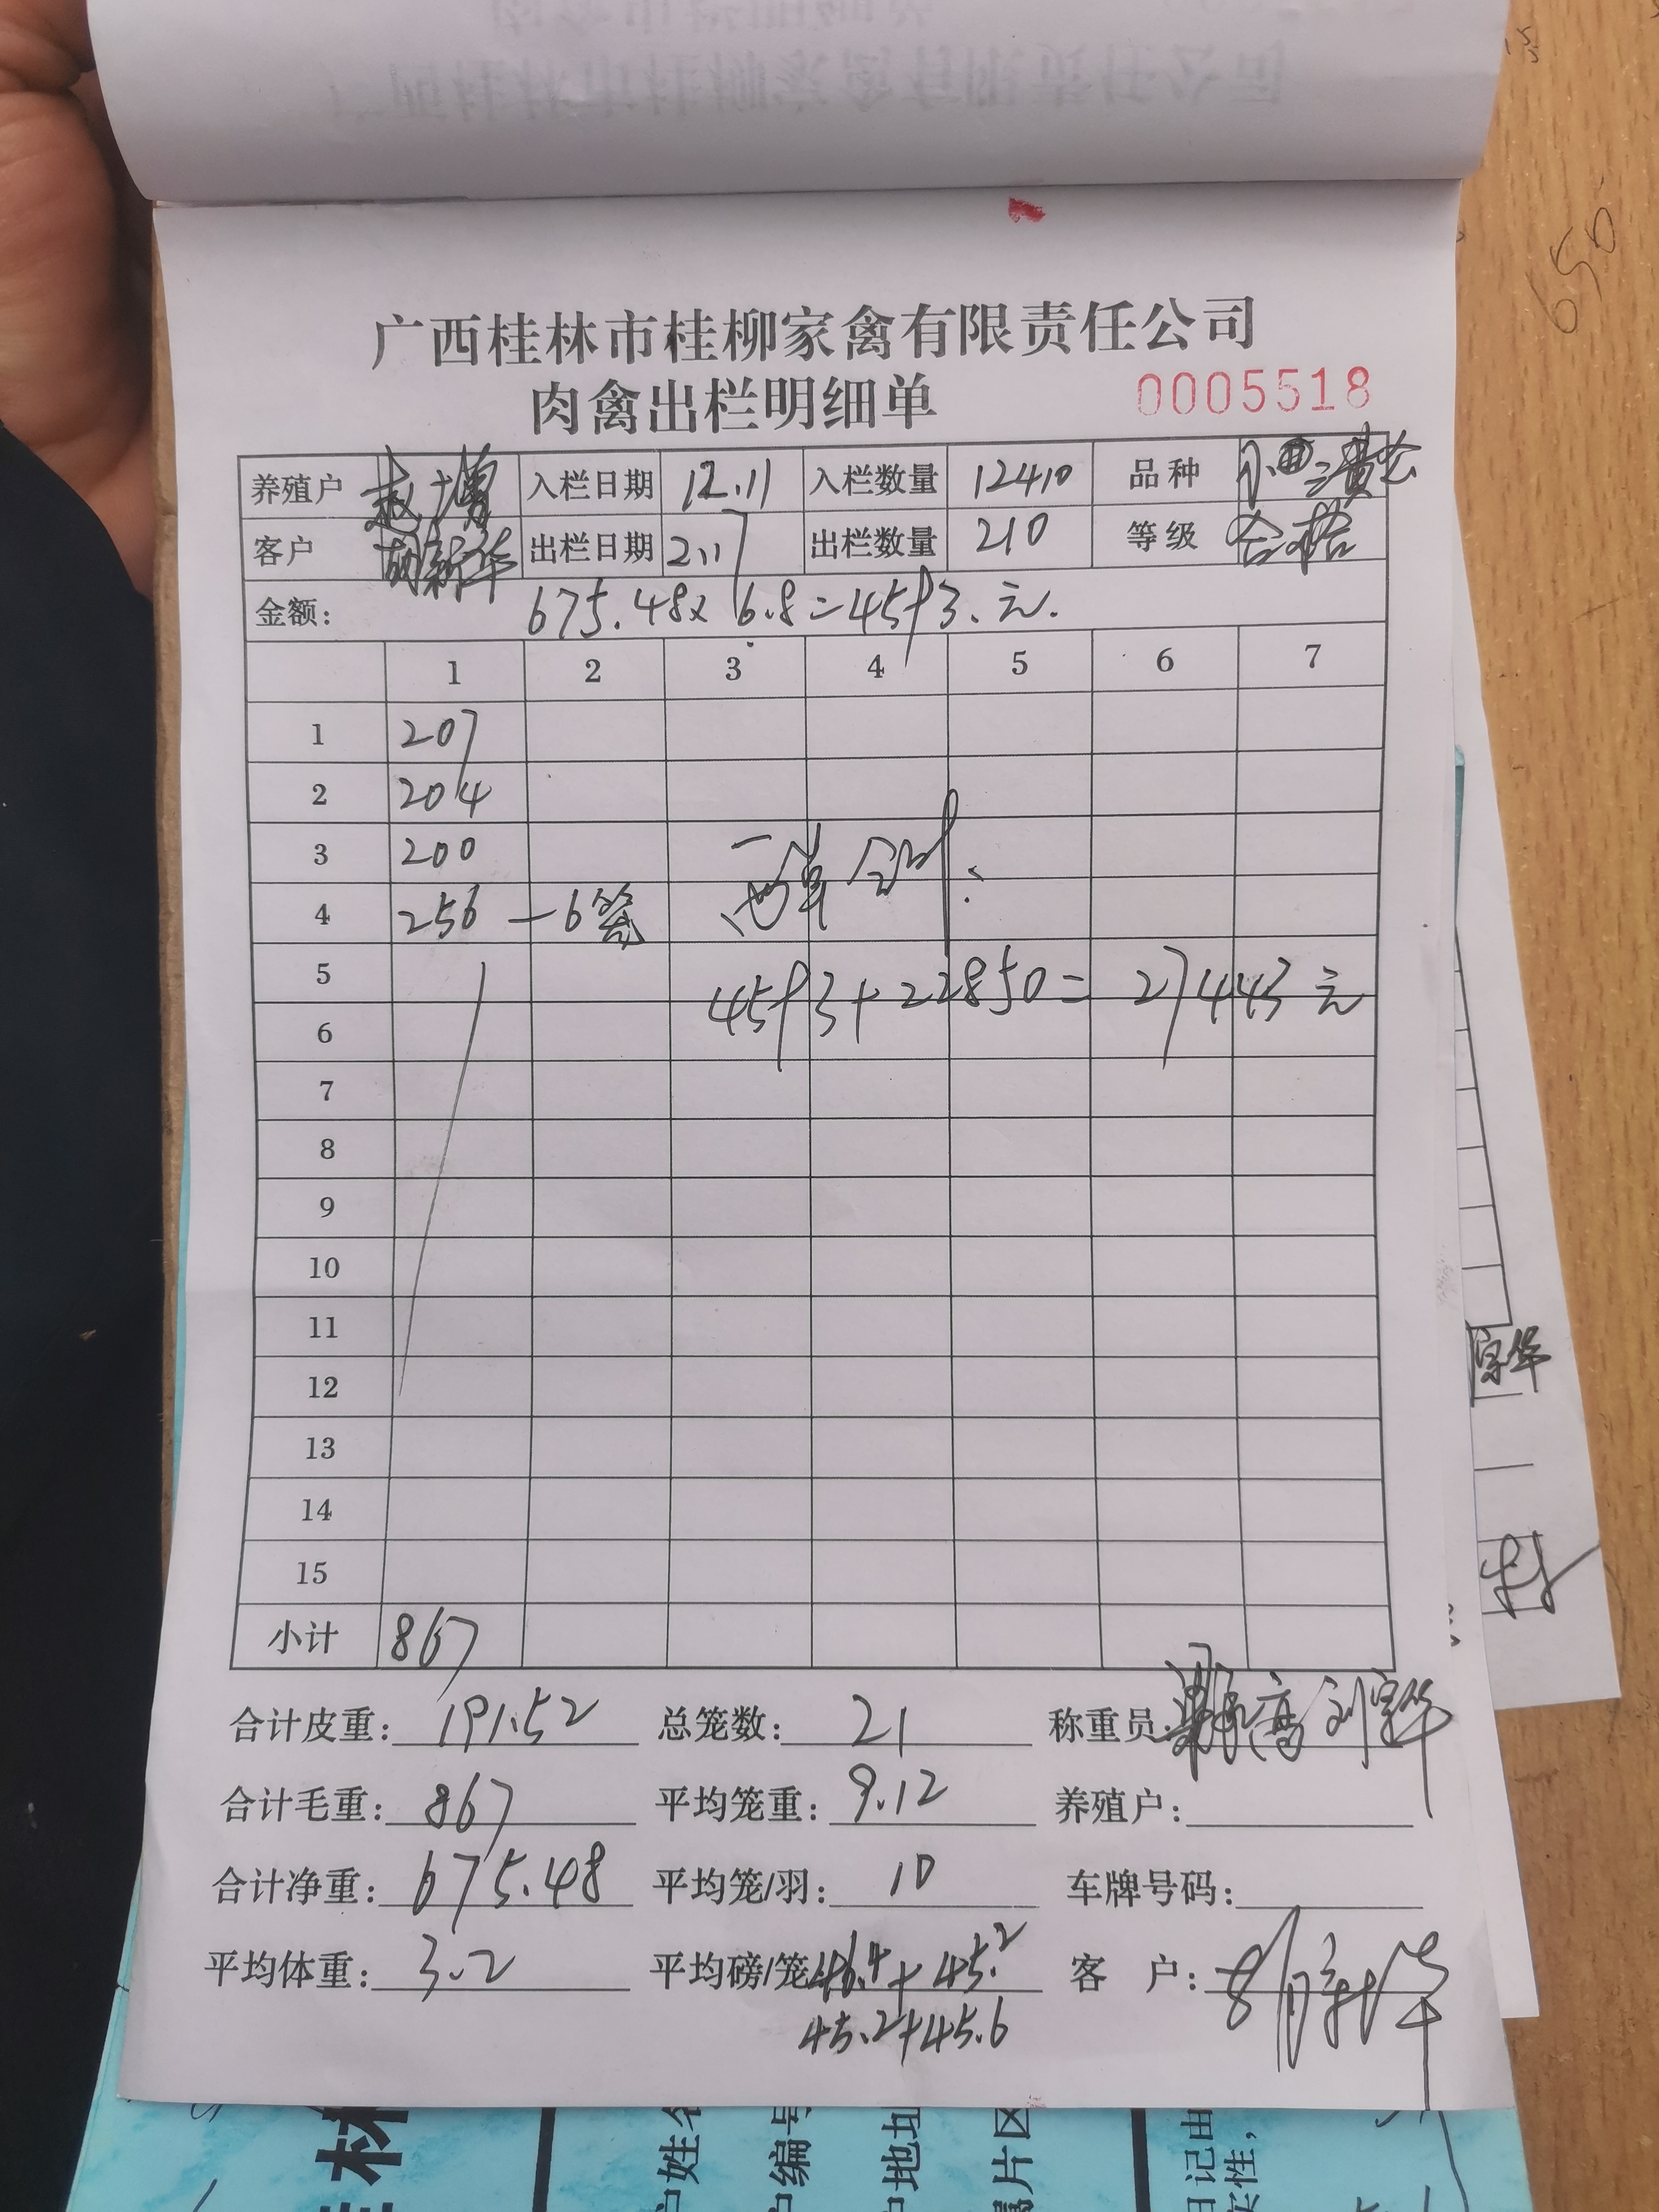 广西桂林市桂柳家禽有限责任公司
肉禽出栏明细单 0005518
养殖户 赵 入栏日期 12.11 入栏数量 12410 品种
客户 胡新华 出栏日期 2.17 出栏数量 210 等级 合格
金额: 675.48x 6.8=4593.元.
1 2 3 4 5 6 7
1 207
2 204
3 200
4 256 —6笼
5 4593+22850= 27443元
6
7
8
9
10
11
12
13
14
15
小计 867
合计皮重: 191.52 总笼数: 21 称重员: 刘宗华
合计毛重: 867 平均笼重: 9.12 养殖户:
合计净重: 675.48 平均笼/羽: 10 车牌号码:
平均体重: 3.2 平均磅/笼 46.4+45.2 客 户: 胡新华
45.2+45.6
650
宗华
户姓名
户编号
户地址
片区
日记由
实性,